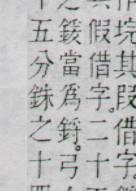 垸其叚借字
其假借字。二十
鍰當為鋝。弓
十五分銖之十